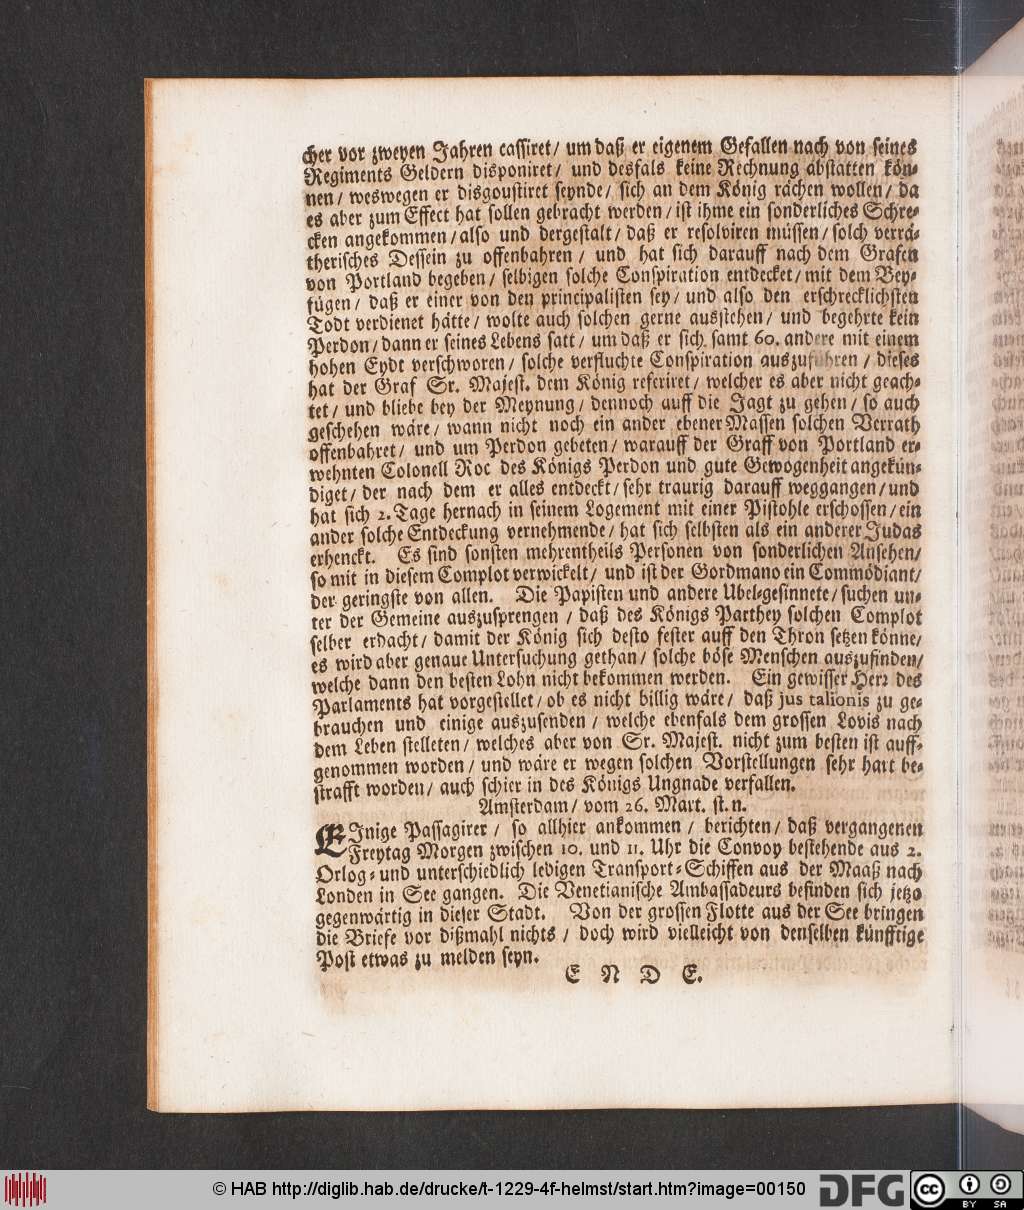 cher vor zweyen Jahren cassiret/ um daß er eigenem Gefallen nach von seines
Regiments Geldern disponiret/ und desfals keine Rechnung abstatten kön-
nen/ weswegen er disgoustiret seynde/ sich an dem König rächen wollen/ da
es aber zum Effect hat sollen gebracht werden/ ist ihme ein sonderliches Schre-
cken angekommen/ also und dergestalt/ daß er resolviren müssen/ solch verrä-
therisches Dessein zu offenbahren/ und hat sich darauff nach dem Grafen
von Portland begeben/ selbigen solche Conspiration entdecket/ mit dem Bey-
fügen/ daß er einer von den principalisten sey/ und also den erschrecklichsten
Todt verdienet hätte/ wolte auch solchen gerne ausstehen/ und begehrte kein
Perdon/ dann er seines Lebens satt/ um daß er sich samt 60. andere mit einem
hohen Eydt verschworen/ solche verfluchte Conspiration auszuführen/ dieses
hat der Graf Sr. Majest. dem König referiret/ welcher es aber nicht geach-
tet/ und bliebe bey der Meynung/ dennoch auff die Jagt zu gehen/ so auch
geschehen wäre/ wann nicht noch ein ander ebener Massen solchen Verrath
offenbahret/ und um Perdon gebeten/ warauff der Graff von Portland er-
wehnten Colonell Roc des Königs Perdon und gute Gewogenheit angekün-
diget/ der nach dem er alles entdeckt/ sehr traurig darauff weggangen/ und
hat sich 2. Tage hernach in seinem Logement mit einer Pistohle erschossen/ ein
ander solche Entdeckung vernehmende/ hat sich selbsten als ein anderer Judas
erhenckt. Es sind sonsten mehrentheils Personen von sonderlichen Ansehen/
so mit in diesem Complot verwickelt/ und ist der Gordmano ein Commödiant/
der geringste von allen. Die Papisten und andere Ubel-gesinnete/ suchen un-
ter der Gemeine auszusprengen/ daß des Königs Parthey solchen Complot
selber erdacht/ damit der König sich desto fester auff den Thron setzen könne/
es wird aber genaue Untersuchung gethan/ solche böse Menschen auszufinden/
welche dann den besten Lohn nicht bekommen werden. Ein gewisser Herr des
Parlaments hat vorgestellet/ ob es nicht billig wäre/ daß jus talionis zu ge-
brauchen und einige auszusenden/ welche ebenfals dem grossen Lovis nach
dem Leben stelleten/ welches aber von Sr. Majest. nicht zum besten ist auff-
genommen worden/ und wäre er wegen solchen Vorstellungen sehr hart be-
strafft worden/ auch schier in des Königs Ungnade verfallen.
Amsterdam/ vom 26. Mart. st. n.
EInige Passagirer/ so allhier ankommen/ berichten/ daß vergangenen
Freytag Morgen zwischen 10. und 11. Uhr die Convoy bestehende aus 2.
Orlog- und unterschiedlich ledigen Transport-Schiffen aus der Maaß nach
Londen in See gangen. Die Venetianische Ambassadeurs befinden sich jetzo
gegenwärtig in dieser Stadt. Von der grossen Flotte aus der See bringen
die Briefe vor dißmahl nichts/ doch wird vielleicht von denselben künfftige
Post etwas zu melden seyn.
E N D E.
© HAB http://diglib.hab.de/drucke/t-1229-4f-helmst/start.htm?image=00150
DFG
cc
BY SA